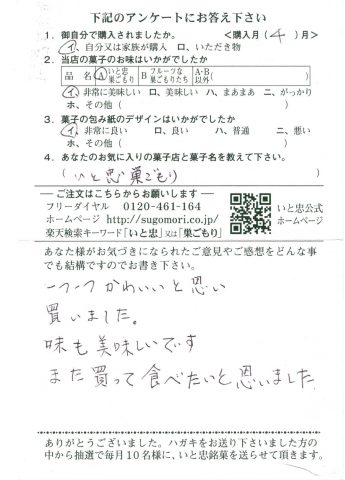 下記のアンケートにお答え下さい
1. 御自分で購入されましたか。 <購入月(4)月>
イ、自分又は家族が購入 ロ、いただき物
2. 当店の菓子のお味はいかがでしたか
品名 A いと忠巣ごもり B フルーツな巣ごもりたち A・B以外( )
イ、非常に美味しい ロ、美味しい ハ、まあまあ ニ、がっかり
ホ、その他( )
3. 菓子の包み紙のデザインはいかがでしたか
イ、非常に良い ロ、良い ハ、普通 ニ、悪い
ホ、その他( )
4. あなたのお気に入りの菓子店と菓子名を教えて下さい。
(いと忠 巣ごもり)
ご注文はこちらからお願いします
フリーダイヤル 0120-461-164
ホームページ http://sugomori.co.jp/
楽天検索キーワード「いと忠」又は「巣ごもり」
いと忠公式
ホームページ
あなた様がお気づきになられたご意見やご感想をどんな事
でも結構ですのでお書き下さい。
一つ一つかわいいと思い
買いました。
味も美味しいです
また買って食べたいと思いました
ありがとうございました。ハガキをお送り下さいました方の
中から抽選で毎月10名様に、いと忠銘菓を送らせて頂きます。